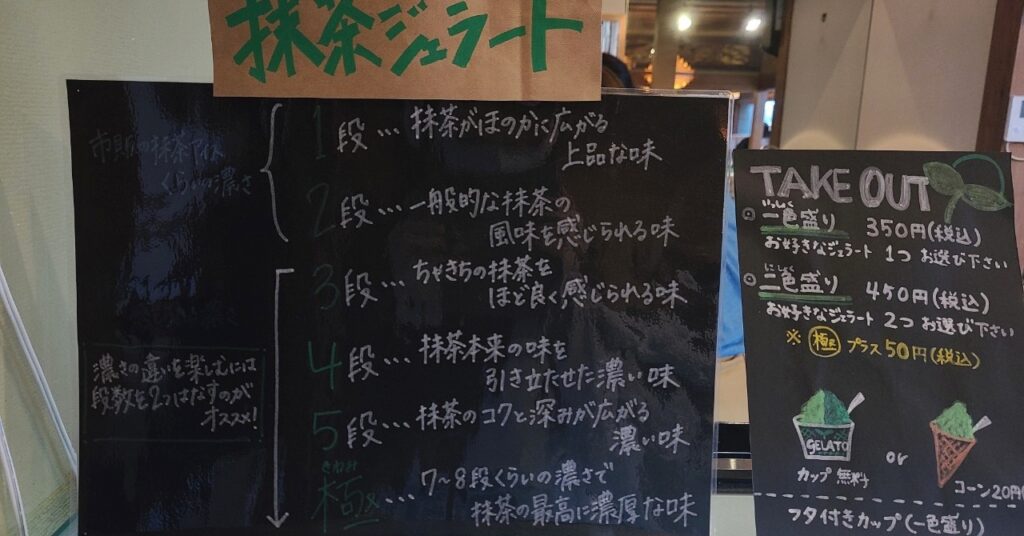 抹茶ジェラート
市販の抹茶アイス
くらいの濃さ
1段…抹茶がほのかに広がる
上品な味
2段…一般的な抹茶の
風味を感じられる味
3段…ちゃきちの抹茶を
ほど良く感じられる味
4段…抹茶本来の味を
引き立たせた濃い味
5段…抹茶のコクと深みが広がる
濃い味
きわみ
極…7〜8段くらいの濃さで
抹茶の最高に濃厚な味
濃さの違いを楽しむには
段数を2つはなすのが
オススメ!
TAKE OUT
いっしょく
◎一色盛り 350円(税込)
お好きなジェラート 1つお選び下さい
にしょく
◎二色盛り 450円(税込)
お好きなジェラート 2つお選び下さい
※極 プラス50円(税込)
GELATO
カップ 無料
or
コーン20円
フタ付きカップ(一色盛り)